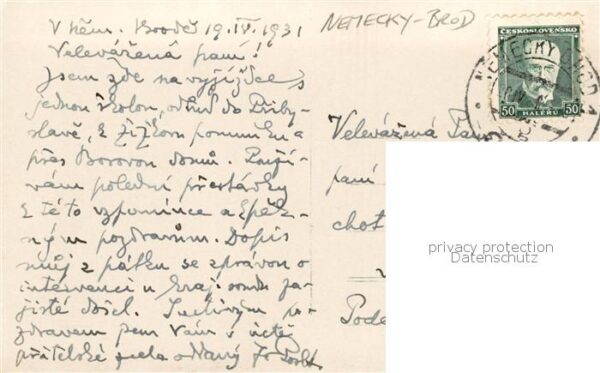 V Něm. Brodě 19.IV.1931
Velevážená paní!
Jsem zde na vyjížďce s
jednou školou, odtud do Přiby-
slavě, k Žižkovu pomníku a
přes Borovou domů. Použí-
vám polední přestávky
k této vzpomínce a
ným pozdravům. Dopis
můj z pátku se zprávou o
intervenci u kraj. soudu za-
jisté došel. Srdečným po-
zdravem jsem Vám v úctě
přátelské zcela oddaný
NEMECKY-BROD
ČESKOSLOVENSKO
50 HALÉŘŮ 50
NĚMECKÝ BROD 1
Velevážená Paní
paní
chot
Podě
privacy protection
Datenschutz